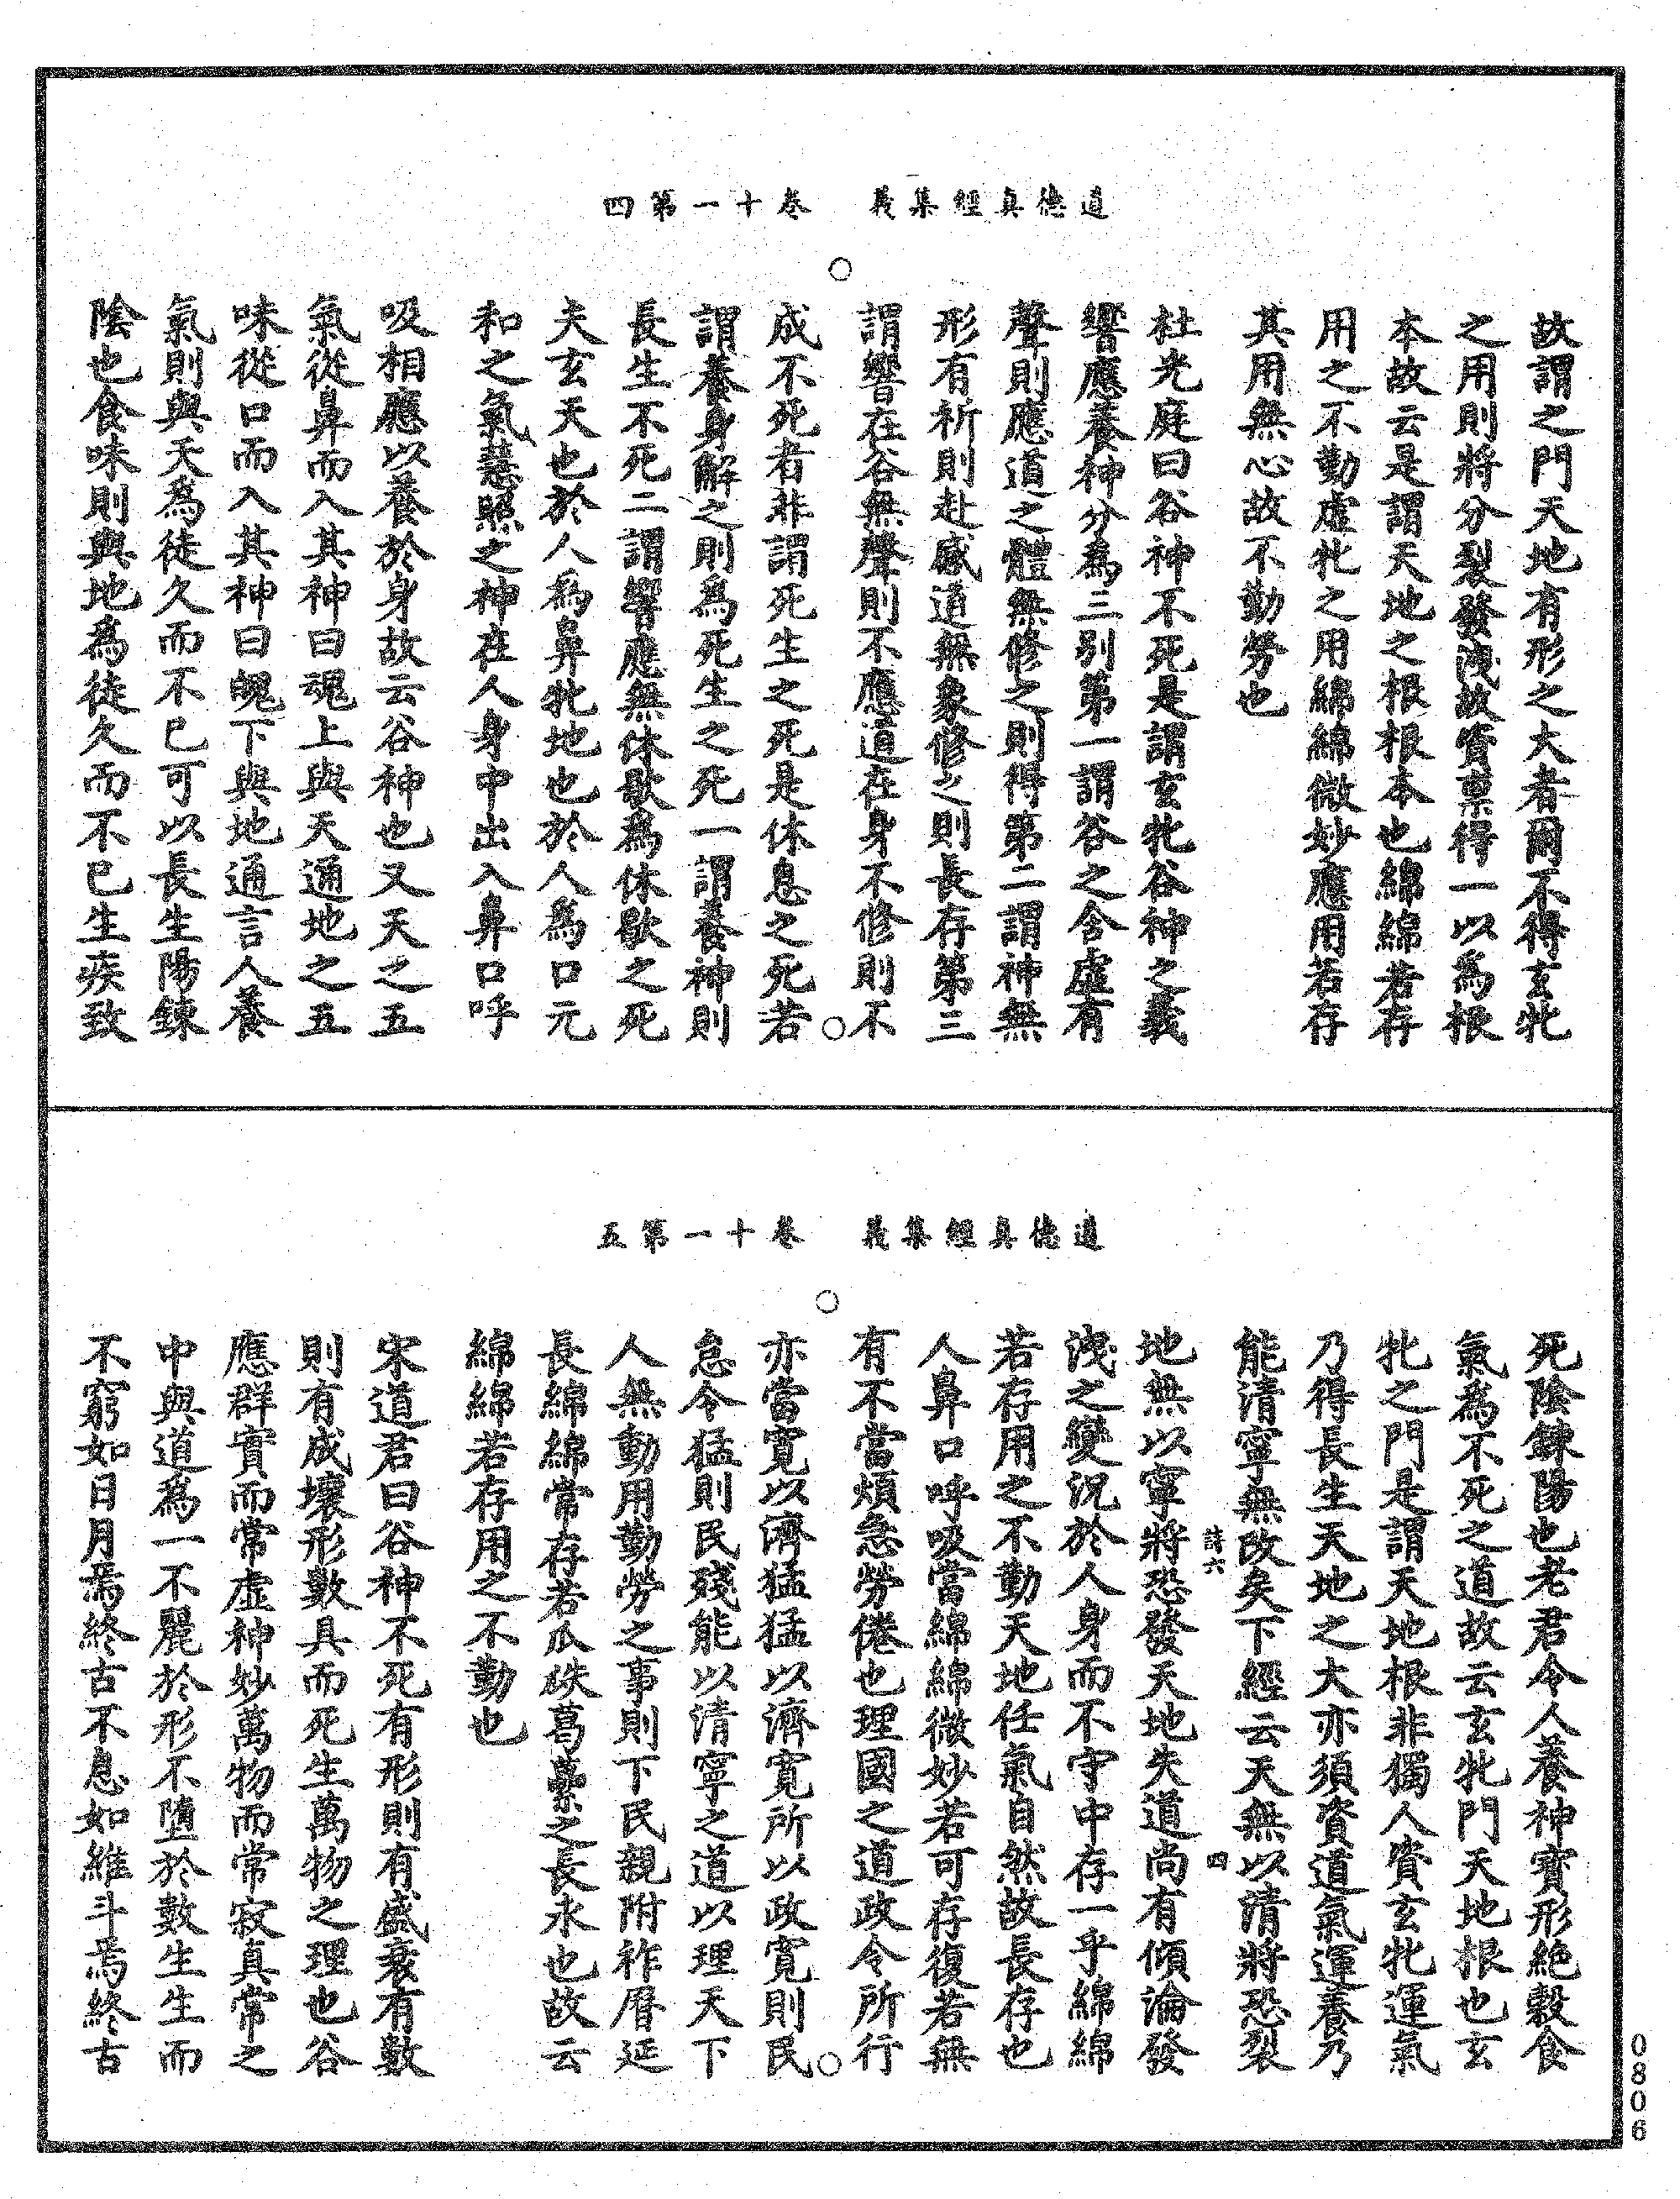 道德真經集義　卷十一第四
故謂之門天地有形之大者爾不得玄牝
之用則將分裂發洩故資稟得一以為根
本故云是謂天地之根根本也綿綿若存
用之不勤虛牝之用綿綿微妙應用若存
其用無心故不勤勞也
杜光庭曰谷神不死是謂玄牝谷神之義
響應養神分為三別第一謂谷之含虛有
聲則應道之體無修之則得第二謂神無
形有祈則赴感道無象修之則長存第三
謂響在谷無聲則不應道在身不修則不
成不死者非謂死生之死是休息之死若
謂養身解之則為死生之死一謂養神則
長生不死二謂響應無休歇為休歇之死
夫玄天也於人為鼻牝地也於人為口元
和之氣慧照之神在人身中出入鼻口呼
吸相應以養於身故云谷神也又天之五
氣從鼻而入其神曰魂上與天通地之五
味從口而入其神曰魄下與地通言人養
氣則與天為徒久而不已可以長生陽鍊
陰也食味則與地為徒久而不已生疾致
道德真經集義　卷十一第五
死陰鍊陽也老君令人養神寶形絕穀食
氣為不死之道故云玄牝門天地根也玄
牝之門是謂天地根非獨人資玄牝運氣
乃得長生天地之大亦須資道氣運養乃
能清寧無改矣下經云天無以清將恐裂
詩六　四
地無以寧將恐發天地失道尚有傾淪發
洩之變況於人身而不守中存一乎綿綿
若存用之不勤天地任氣自然故長存也
人鼻口呼吸當綿綿微妙若可存復若無
有不當煩急勞倦也理國之道政令所行
亦當寬以濟猛猛以濟寬所以政寬則民
怠令猛則民殘能以清寧之道以理天下
人無動用勤勞之事則下民親附祚曆延
長綿綿常存若瓜瓞葛虆之長永也故云
綿綿若存用之不勤也
宋道君曰谷神不死有形則有盛衰有數
則有成壞形數具而死生萬物之理也谷
應群實而常虛神妙萬物而常寂真常之
中與道為一不麗於形不墮於數生生而
不窮如日月焉終古不息如維斗焉終古
0806